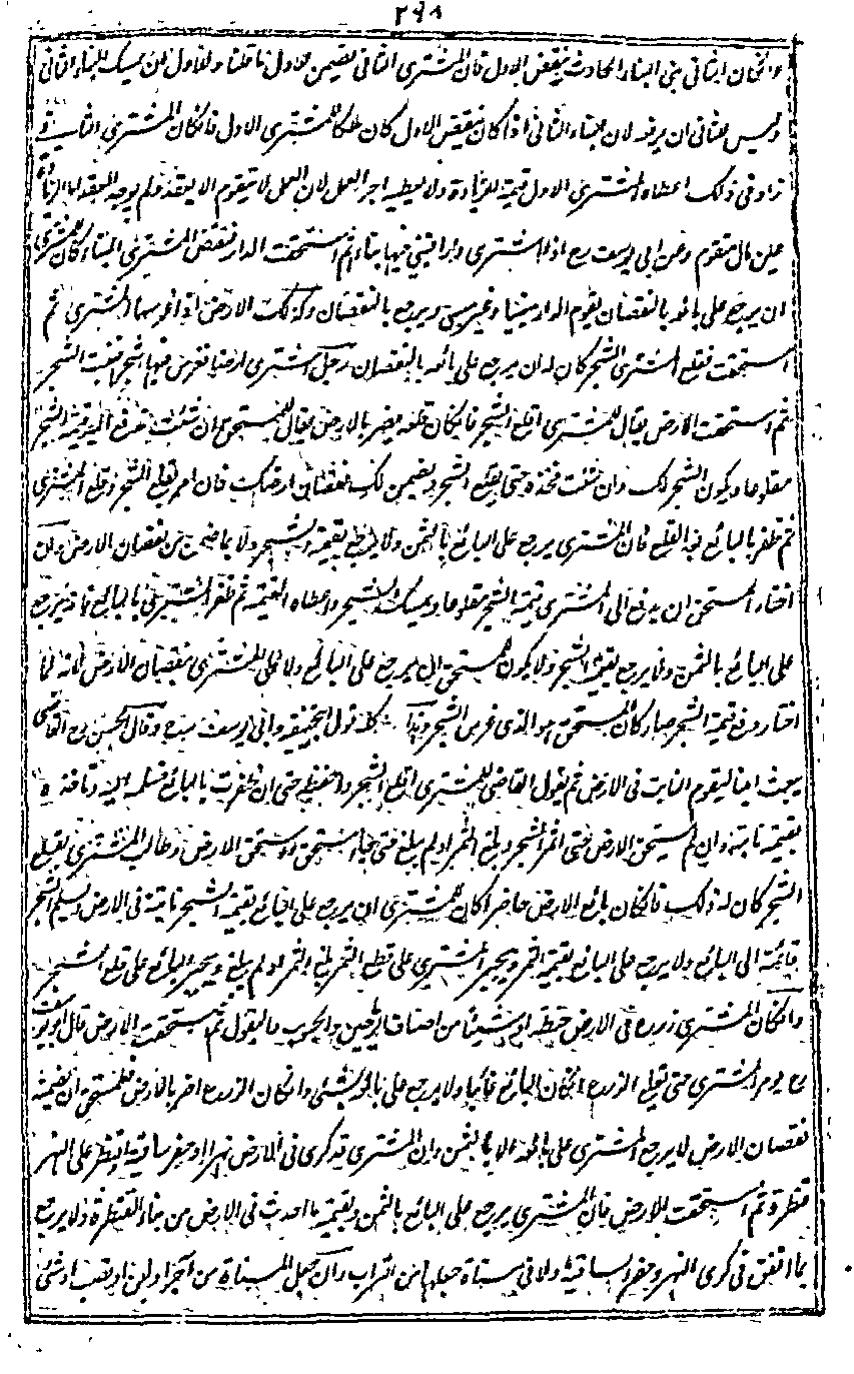 ٢٩٨
وان كان الثاني بنى البناء الحادث بنقض الاول فان المشتري الثاني يضمن للاول ما قلنا وللاول ان يمسك البناء الثاني
وليس للثاني ان يرفعه لان البناء الثاني اذا كان بنقض الاول كان ملكا للمشتري الاول فان كان المشتري الثاني
زاد في ذلك اعطاه المشتري الاول قيمة الزيادة ولا يعطيه اجر العمل لان العمل لا يتقوم الا بعقد ولم يوجد العقد اما الزيادة
عين مال متقوم وعن ابي يوسف رح اذا اشترى دارا فبنى فيها بناء ثم استحقت الدار فنقض المشتري البناء كان للمشتري
ان يرجع على بائعه بالنقصان يقوم الدار مبنيا وغير مبني ويرجع بالنقصان وكذلك الارض اذا غرسها المشتري ثم
استحقت فقلع المشتري الشجر كان له ان يرجع على بائعه بالنقصان رجل اشترى ارضا فغرس فيها شجرا فنبت الشجر
ثم استحقت الارض يقال للمشتري اقلع الشجر فان كان قلعه يضر بالارض يقال للمستحق ان شئت تدفع اليه قيمة الشجر
مقلوعا ويكون الشجر لك وان شئت فخذه حتى يقلع الشجر ويضمن لك نقصان ارضك فان امره بقلع الشجر وقلع المشتري
ثم ظفر بالبائع بعد القلع فان المشتري يرجع على البائع بالثمن ولا يرجع بقيمة الشجر ولا بما ضمن من نقصان الارض وان
اختار المستحق ان يدفع الى المشتري قيمة الشجر مقلوعا ويمسك الشجر واعطاه القيمة ثم ظفر المشتري بالبائع فانه يرجع
على البائع بالثمن ولا يرجع بقيمة الشجر ولا يكون للمستحق ان يرجع على البائع ولا على المشتري بنقصان الارض لانه لما
اختار دفع قيمة الشجر صار كان المستحق هو الذي غرس الشجر وهذا كله قول ابي حنيفة وابي يوسف رح وقال الحسن رح القاضي
يبعث امينا ليقوم النابت في الارض ثم يقول القاضي للمشتري اقلع الشجر واحفظه حتى ان ظفرت بالبائع فسلمه اليه
بقيمته نابتة وان لم يستحق الارض حتى اثمر الشجر وبلغ الثمر او لم يبلغ حتى جاء مستحق واستحق الارض وطالب المشتري بقلع
الشجر كان له ذلك فان كان بائع الارض حاضرا كان للمشتري ان يرجع على البائع بقيمة الشجر نابتة في الارض ويسلم الشجر
قائمة الى البائع ولا يرجع على البائع بقيمة الثمر ويجبر المشتري على قطع الثمر بلغ الثمر او لم يبلغ ويجبر البائع على قلع الشجر
وان كان المشتري زرع في الارض حنطة او شيئا من اصناف الرياحين والحبوب والبقول ثم استحقت الارض قال ابو يوسف
رح يؤمر المشتري حتى يقلع الزرع ان كان البائع غائبا ولا يرجع على بائعه بشيء وان كان الزرع اضر بالارض للمستحق ان يضمنه
نقصان الارض لا يرجع المشتري على بائعه الا بالثمن وان المشتري قد كرى في الارض نهرا او حفر ساقية او قنطر على النهر
قنطرة ثم استحقت الارض فان المشتري يرجع على البائع بالثمن وبقيمة ما احدث في الارض من بناء القنطرة ولا يرجع
بما انفق في كرى النهر وحفر الساقية ولا في مسناة جعلها من التراب وان جعل المسناة من آجر او لبن او قصب او شيء